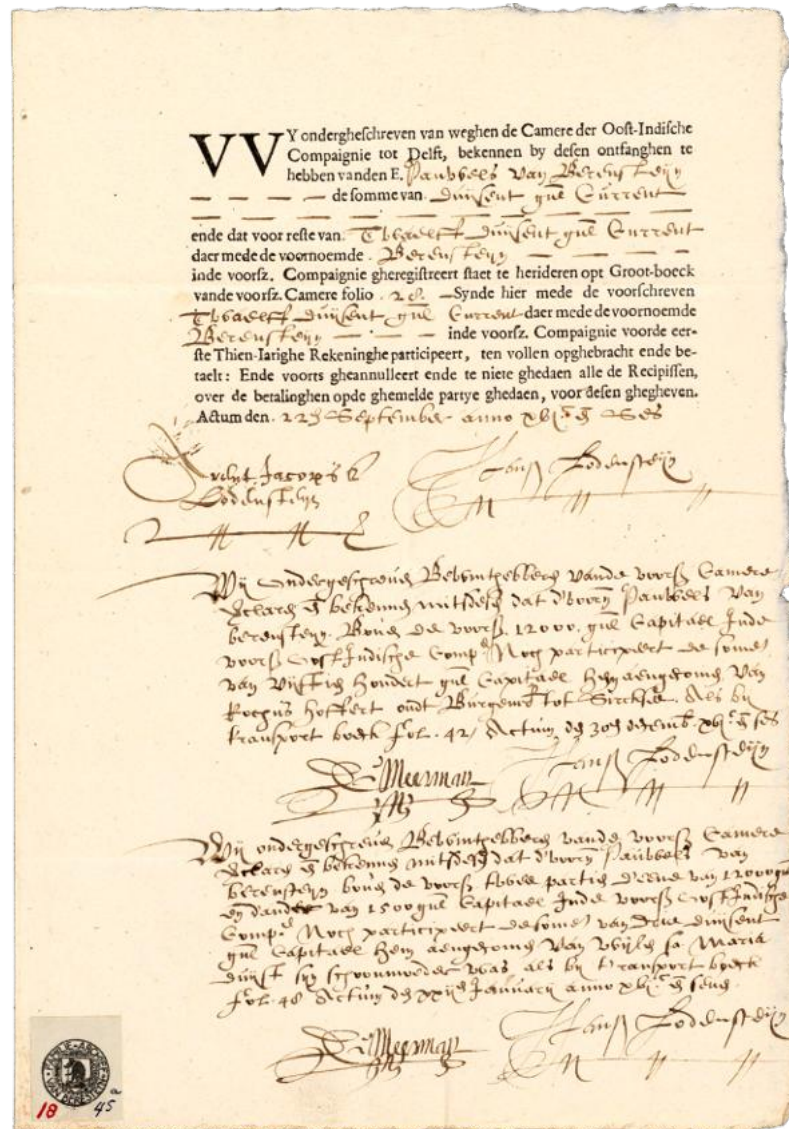 VVY ondergheschreven van weghen de Camere der Oost-Indische
Compaignie tot Delft, bekennen by desen ontfanghen te
hebben vanden E. Pauwels van Berensteyn
de somme van duijsent gul Current
ende dat voor reste van Twaelff duijsent gul Current
daer mede de voornoemde Berensteyn
inde voorsz. Compaignie gheregistreert staet te herideren opt Groot-boeck
vande voorsz. Camere folio 28. Synde hier mede de voorschreven
Twaelff duijsent gul Current daer mede de voornoemde
Berensteyn inde voorsz. Compaignie voorde eer-
ste Thien-Iarighe Rekeninghe participeert, ten vollen opghebracht ende be-
taelt: Ende voorts gheannulleert ende te niete ghedaen alle de Recipissen,
over de betalinghen opde ghemelde partye ghedaen, voor desen ghegheven.
Actum den. 22 September anno xvjc en Ses
Arent Jacopsz Hans Lodensteijn
Lodensteyn
Wij Ondergeschreven Bewinthebberen vande voorsz Camere
verclaren en bekennen mitsdesen dat d'voorn Pauwels van
berensteyn. Boven de voorsz. 12000. gul Capitael Inde
voorsz Oost Indische Comp Noch participeert de some
van Vijftien hondert gul Capitael hem aengecomen van
Rochus hoffert oudt Burgemr tot Sircksee. Als by
transport boeck fol. 42 Actum den 30en decemb. xvjc en ses
Meerman Hans Lodensteijn
Wij ondergeschreven Bewinthebberen vande voorsz Camere
verclaren en bekennen mitsdesen dat d'voorn Pauwels van
berensteyn boven de voorsz. twee partien d'eene van 12000 gul
en d'ander van 1500 gul Capitael Inde voorsz Oost Indische
Comp. Noch participeert de some van drie duijsent
gul Capitael hem aengecomen van wijlen sa. Maria
duijst sijn schoonmoeder was als by transport boeck
fol. 48 Actum den xxijen Januarij anno xvjc en seven
Meerman Hans Lodensteijn
FAMILIE-ARCHIEF
VAN BERESTEYN
18 45a